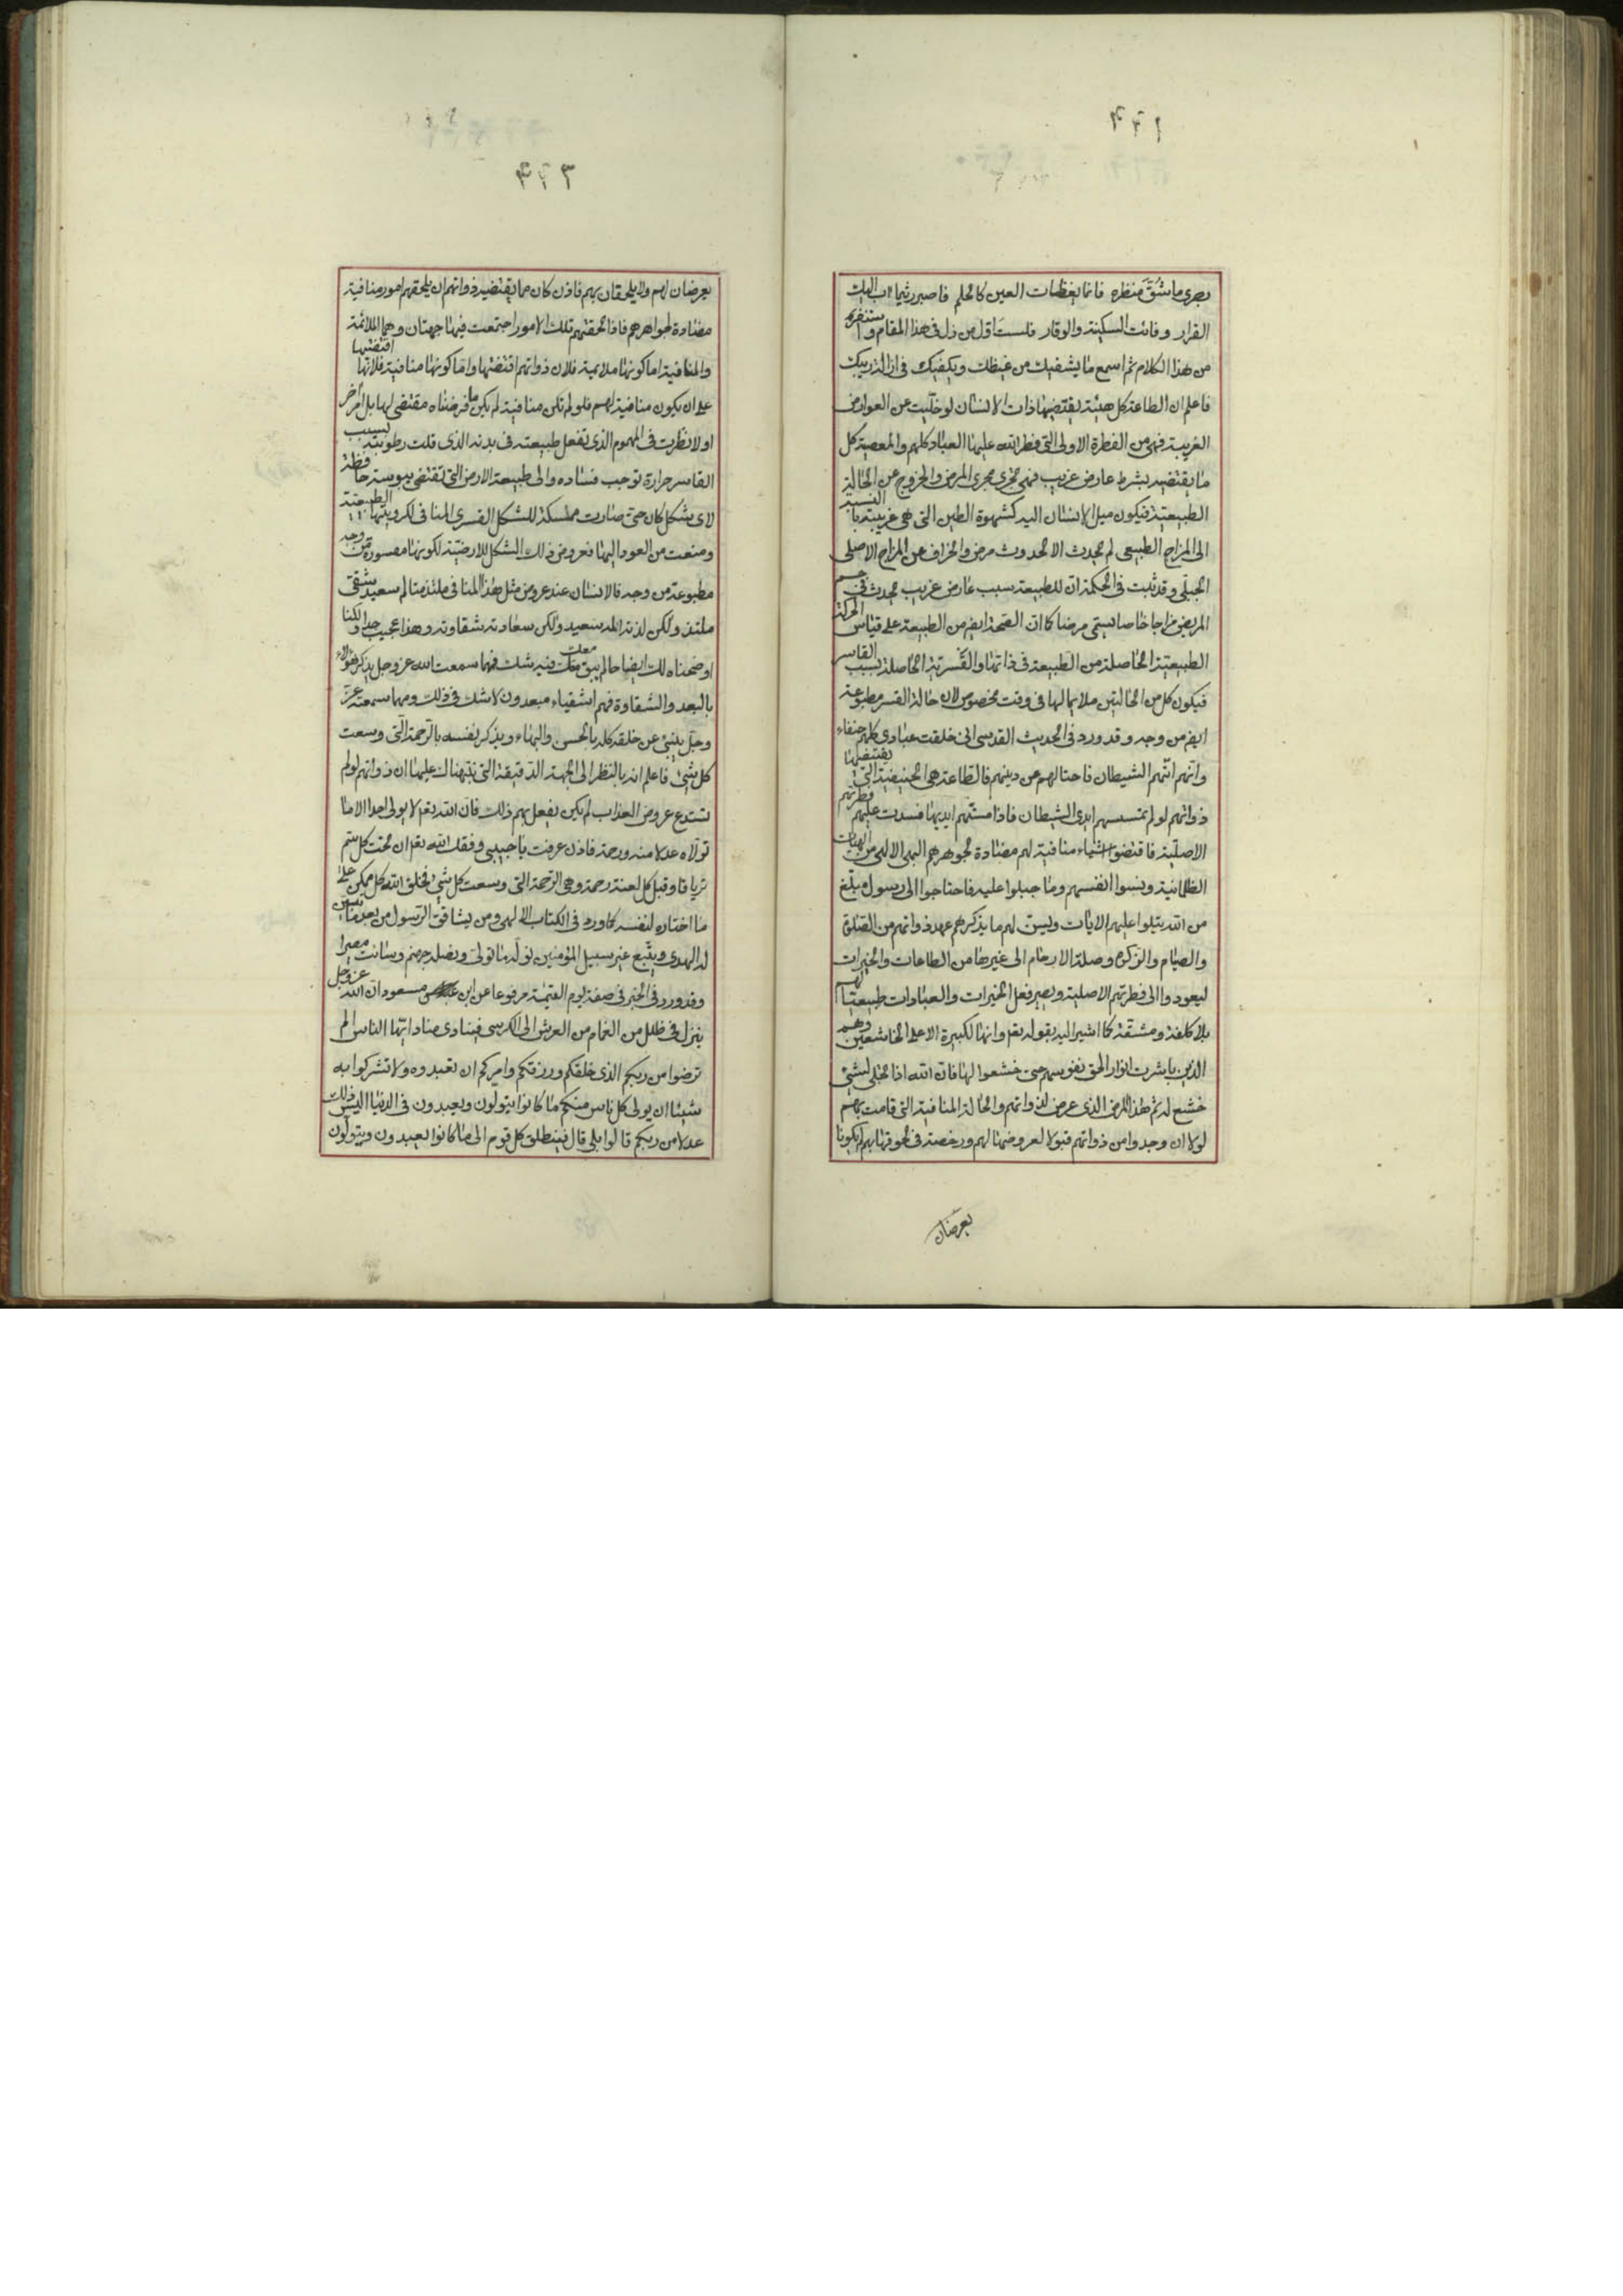 ٤٢١
يجرى ما شق منظره فانما يغطيات العين كالحلم فاصبر ريثما اب اليك
القرار وفائت السكينة والوقار فلست اقل من ذل فى هذا المقام و استنفره
من هذا الكلام ثم اسمع ما يشفيك من غيظك ويكفيك فى ازالة ريبك
فاعلم ان الطاعة كل هيئة يقتضيها ذات الانسان لو خليت عن العوارض
الغريبة فهى من الفطرة الاولى التى فطر الله عليها العباد كلهم والمعصية كل
ما يقتضيه بشرط عارض غريب فهى تجرى مجرى المرض والخروج عن الحالة
الطبيعية فيكون ميل الانسان اليه كشهوة الطين التى هى غريبة بالنسبة
الى المزاج الطبيعى لم يحدث الا لحدوث مرض وانحراف عن المزاج الاصلى
الجبلى وقد ثبت فى الحكمة ان للطبيعة بسبب عارض غريب يحدث فى جسم
المريض مزاجا خاصا يسمى مرضا كما ان الصحة ايض من الطبيعة على قياس الحركة
الطبيعية الحاصلة من الطبيعة فى ذاتها والقسرية الحاصلة بسبب القاسر
فيكون كل من الحالتين ملايما لها فى وقت مخصوص لان حالة القسر مطبوعة
ايض من وجه وقد ورد فى الحديث القدسى انى خلقت عبادى كلهم حنفاء
وانهم اتتهم الشيطان فاحتالهم عن دينهم فالطاعة هى الحنيفية التى يقتضيها
ذواتهم لو لم تمسسهم ايدى الشيطان فاذا مستهم ايديها فسدت عليهم فطرتهم
الاصلية فاقتضوا اشياء منافية لهم مضادة لجوهرهم البهى الالهى من الهيئات
الظلمانية ونسوا انفسهم وما جبلوا عليه فاحتاجوا الى رسول مبلغ
من الله يتلوا عليهم الايات ويسن لهم ما يذكرهم عهد ذواتهم من الصلوة
والصيام والزكوة وصلة الارحام الى غيرها من الطاعات والخيرات
ليعودوا الى فطرتهم الاصلية ويصير فعل الخيرات والعبادات طبيعيا لهم
بلا كلفة ومشقة كما اشير اليه بقوله تعم وانها لكبيرة الا على الخاشعين وهم
الذين باشرت انوار الحق نفوسهم حتى خشعوا لها فان الله اذا تجلى لشئ
خشع له ثم هذا المرض الذى عرض لذواتهم والحالة المنافية التى قامت بهم
لولا ان وجدوا من ذواتهم قبولا لعروضهما لهم ورخصة فى لحوقهما بهم لم يكونا
يعرضان
٤٢٣
يعرضان لهم ولا يلحقان بهم فاذن كان مما يقتضيه ذواتهم ان يلحقهم امور منافية
مضادة لجواهرهم فاذا لحقتهم تلك الامور اجتمعت فيها جهتان وهما الملائمة
والمنافية اما كونها ملائمة فلان ذواتهم اقتضتها واما كونها منافية فلانها اقتضتها
على ان يكون منافية لهم فلو لم تكن منافية لم يكن ما فرضناه مقتضى لها بل امر اخر
اولا نظرت فى المهموم الذى تفعل طبيعته فى بدنه الذى قلت رطوبته بسبب
القاسر حرارة توجب فساده والى طبيعة الارض التى تقتضى يبوسة حافظة
لاى شكل كان حتى صارت ممسكة للشكل القسرى المنافى لكرويتها الطبيعية
ومنعت من العود اليها فعروض ذلك الشكل للارضية لكونها مقسورة من وجه
مطبوعة من وجه فالانسان عند عروض مثل هذا المنافى ملتذ متالم سعيد شقى
ملتذ ولكن لذته المه سعيد ولكن سعادته شقاوته وهذا عجيب جدا ولكنا
اوضحناه لك ايضاحا لم يبق معك فيه شك فمهما سمعت الله عز وجل يذكر هؤلاء
بالبعد والشقاوة فهم اشقياء مبعدون لا شك فى ذلك ومهما سمعته عز
وجل يثنى عن خلقه كله بالحسن والبهاء ويذكر نفسه بالرحمة التى وسعت
كل شئ فاعلم انه بالنظر الى الجهة الدقيقة التى نبهناك عليها ان ذواتهم لو لم
تستدع عروض العذاب لم يكن يفعل بهم ذلك فان الله تعم لا يولى احدا الا ما
تولاه عدلا منه ورحمة فاذن عرفت يا حبيبى وفقك الله تعم ان تحت كل سم
ترياقا وقبل كل لعنة رحمة وهى الرحمة التى وسعت كل شئ فخلق الله كل ممكن على
ما اختاره لنفسه كما ورد فى الكتاب الالهى ومن يشاقق الرسول من بعد ما تبين
له الهدى ويتبع غير سبيل المؤمنين نوله ما تولى ونصله جهنم وسائت مصيرا
وقد ورد فى الخبر فى صفة يوم القيمة مرفوعا عن ابن مسعود ان الله عز وجل
ينزل فى ظلل من الغمام من العرش الى الكرسى فينادى مناد ايها الناس الم
ترضوا من ربكم الذى خلقكم ورزقكم وامركم ان تعبدوه ولا تشركوا به
شيئا ان يولى كل ناس منكم ما كانوا يتولون ويعبدون فى الدنيا اليس ذلك
عدلا من ربكم قالوا بلى قال فينطلق كل قوم الى ما كانوا يعبدون ويتولون